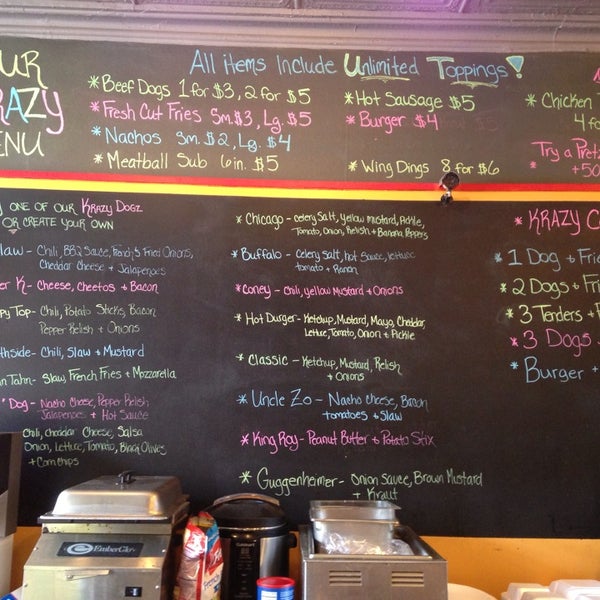 OUR
KRAZY
MENU
All Items Include Unlimited Toppings!
* Beef Dogs 1 for $3, 2 for $5
* Fresh Cut Fries Sm. $3, Lg. $5
* Nachos Sm. $2, Lg. $4
* Meatball Sub 6in. $5
* Hot Sausage $5
* Burger $4
* Wing Dings 8 for $6
* Chicken
4 fo
Try a Pretz
+ 50
one of our Krazy Dogz
or create your own
law - Chili, BBQ Sauce, French Fried Onions,
Cheddar Cheese + Jalapenos
er K - Cheese, Cheetos + Bacon
py Top - Chili, Potato Sticks, Bacon
Pepper Relish + Onions
thside - Chili, Slaw + Mustard
n Tahn - Slaw, French Fries + Mozzarella
Dog - Nacho Cheese, Pepper Relish,
Jalapenos + Hot Sauce
Chili, Cheddar Cheese, Salsa
Onion, Lettuce, Tomato, Black Olives
+ Corn Chips
* Chicago - Celery Salt, Yellow Mustard, Pickle,
Tomato, Onion, Relish + Banana Peppers
* Buffalo - Celery Salt, Hot Sauce, Lettuce
Tomato + Ranch
* Coney - Chili, Yellow Mustard + Onions
* Hot Durger - Ketchup, Mustard, Mayo, Cheddar,
Lettuce, Tomato, Onion + Pickle
* Classic - Ketchup, Mustard, Relish
+ Onions
* Uncle Zo - Nacho Cheese, Bacon
Tomatoes + Slaw
* King Roy - Peanut Butter + Potato Stix
* Guggenheimer - Onion Sauce, Brown Mustard
+ Kraut
* KRAZY C
* 1 Dog + Frie
* 2 Dogs + Fri
* 3 Tenders + F
* 3 Dogs
* Burger +
EmberGlo
Cuisinart